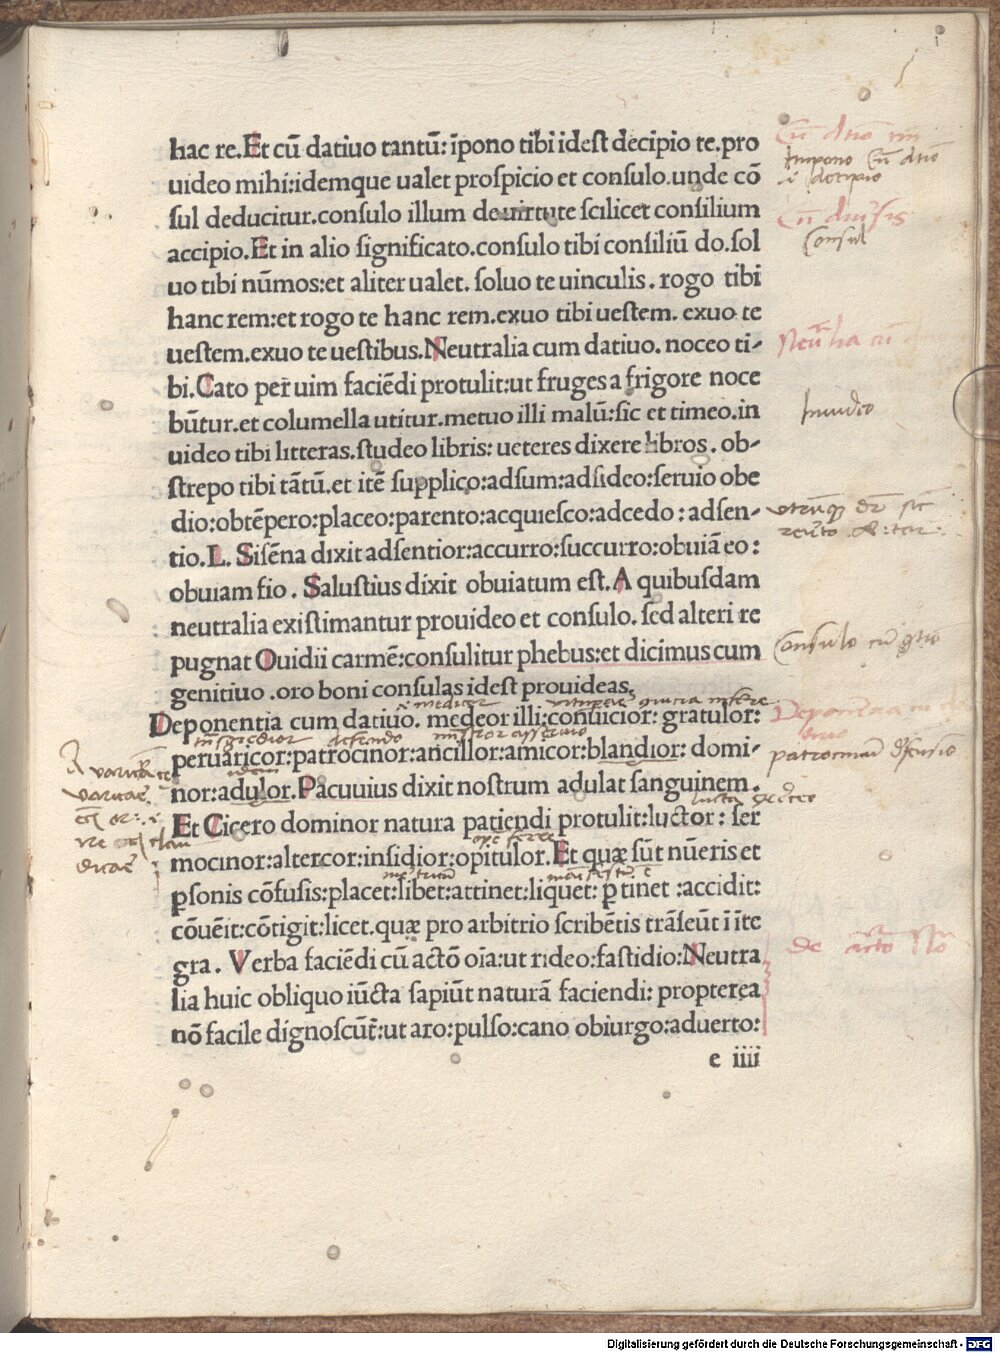 hac re.Et cū datiuo tantū: īpono tibi idest decipio te.pro
uideo mihi:idemque ualet prospicio et consulo.unde cō
sul deducitur.consulo illum de uirtute scilicet consilium
accipio.Et in alio significato.consulo tibi consiliū do.sol
uo tibi nūmos:et aliter ualet. soluo te uinculis. rogo tibi
hanc rem:et rogo te hanc rem.exuo tibi uestem. exuo te
uestem.exuo te uestibus.Neutralia cum datiuo. noceo ti-
bi.Cato per uim faciēdi protulit:ut fruges a frigore noce
būtur.et columella utitur.metuo illi malū:sic et timeo.in
uideo tibi litteras.studeo libris: ueteres dixere libros. ob-
strepo tibi tātū.et itē supplico:adsum:adsideo:seruio obe
dio:obtēpero:placeo:parento:acquiesco:adcedo:adsen-
tio.L. Sisēna dixit adsentior:accurro:succurro:obuiā eo:
obuiam fio. Salustius dixit obuiatum est.A quibusdam
neutralia existimantur prouideo et consulo. sed alteri re
pugnat Ouidii carmē:consulitur phebus:et dicimus cum
genitiuo.oro boni consulas idest prouideas.
Deponentia cum datiuo. medeor illi:conuicior: gratulor:
peruaricor:patrocinor:ancillor:amicor:blandior: domi-
nor:adulor.Pacuuius dixit nostrum adulat sanguinem.
Et Cicero dominor natura patiendi protulit:luctor: ser
mocinor:altercor:insidior:opitulor.Et quæ sūt nūeris et
ꝑsonis cōfusis:placet:libet:attinet:liquet: ꝑtinet:accidit:
cōuēit:cōtigit:licet.quæ pro arbitrio scribētis trāseūt ī īte
gra. Verba faciēdi cū actō oīa:ut rideo:fastidio:Neutra
lia huic obliquo iūcta sapiūt naturā faciendi: propterea
nō facile dignoscūt:ut aro:pulso:cano obiurgo:aduerto:
e iiii
Impono
decipio
Consul
Inuideo
Consulo
patrocinium
Digitalisierung gefördert durch die Deutsche Forschungsgemeinschaft - DFG